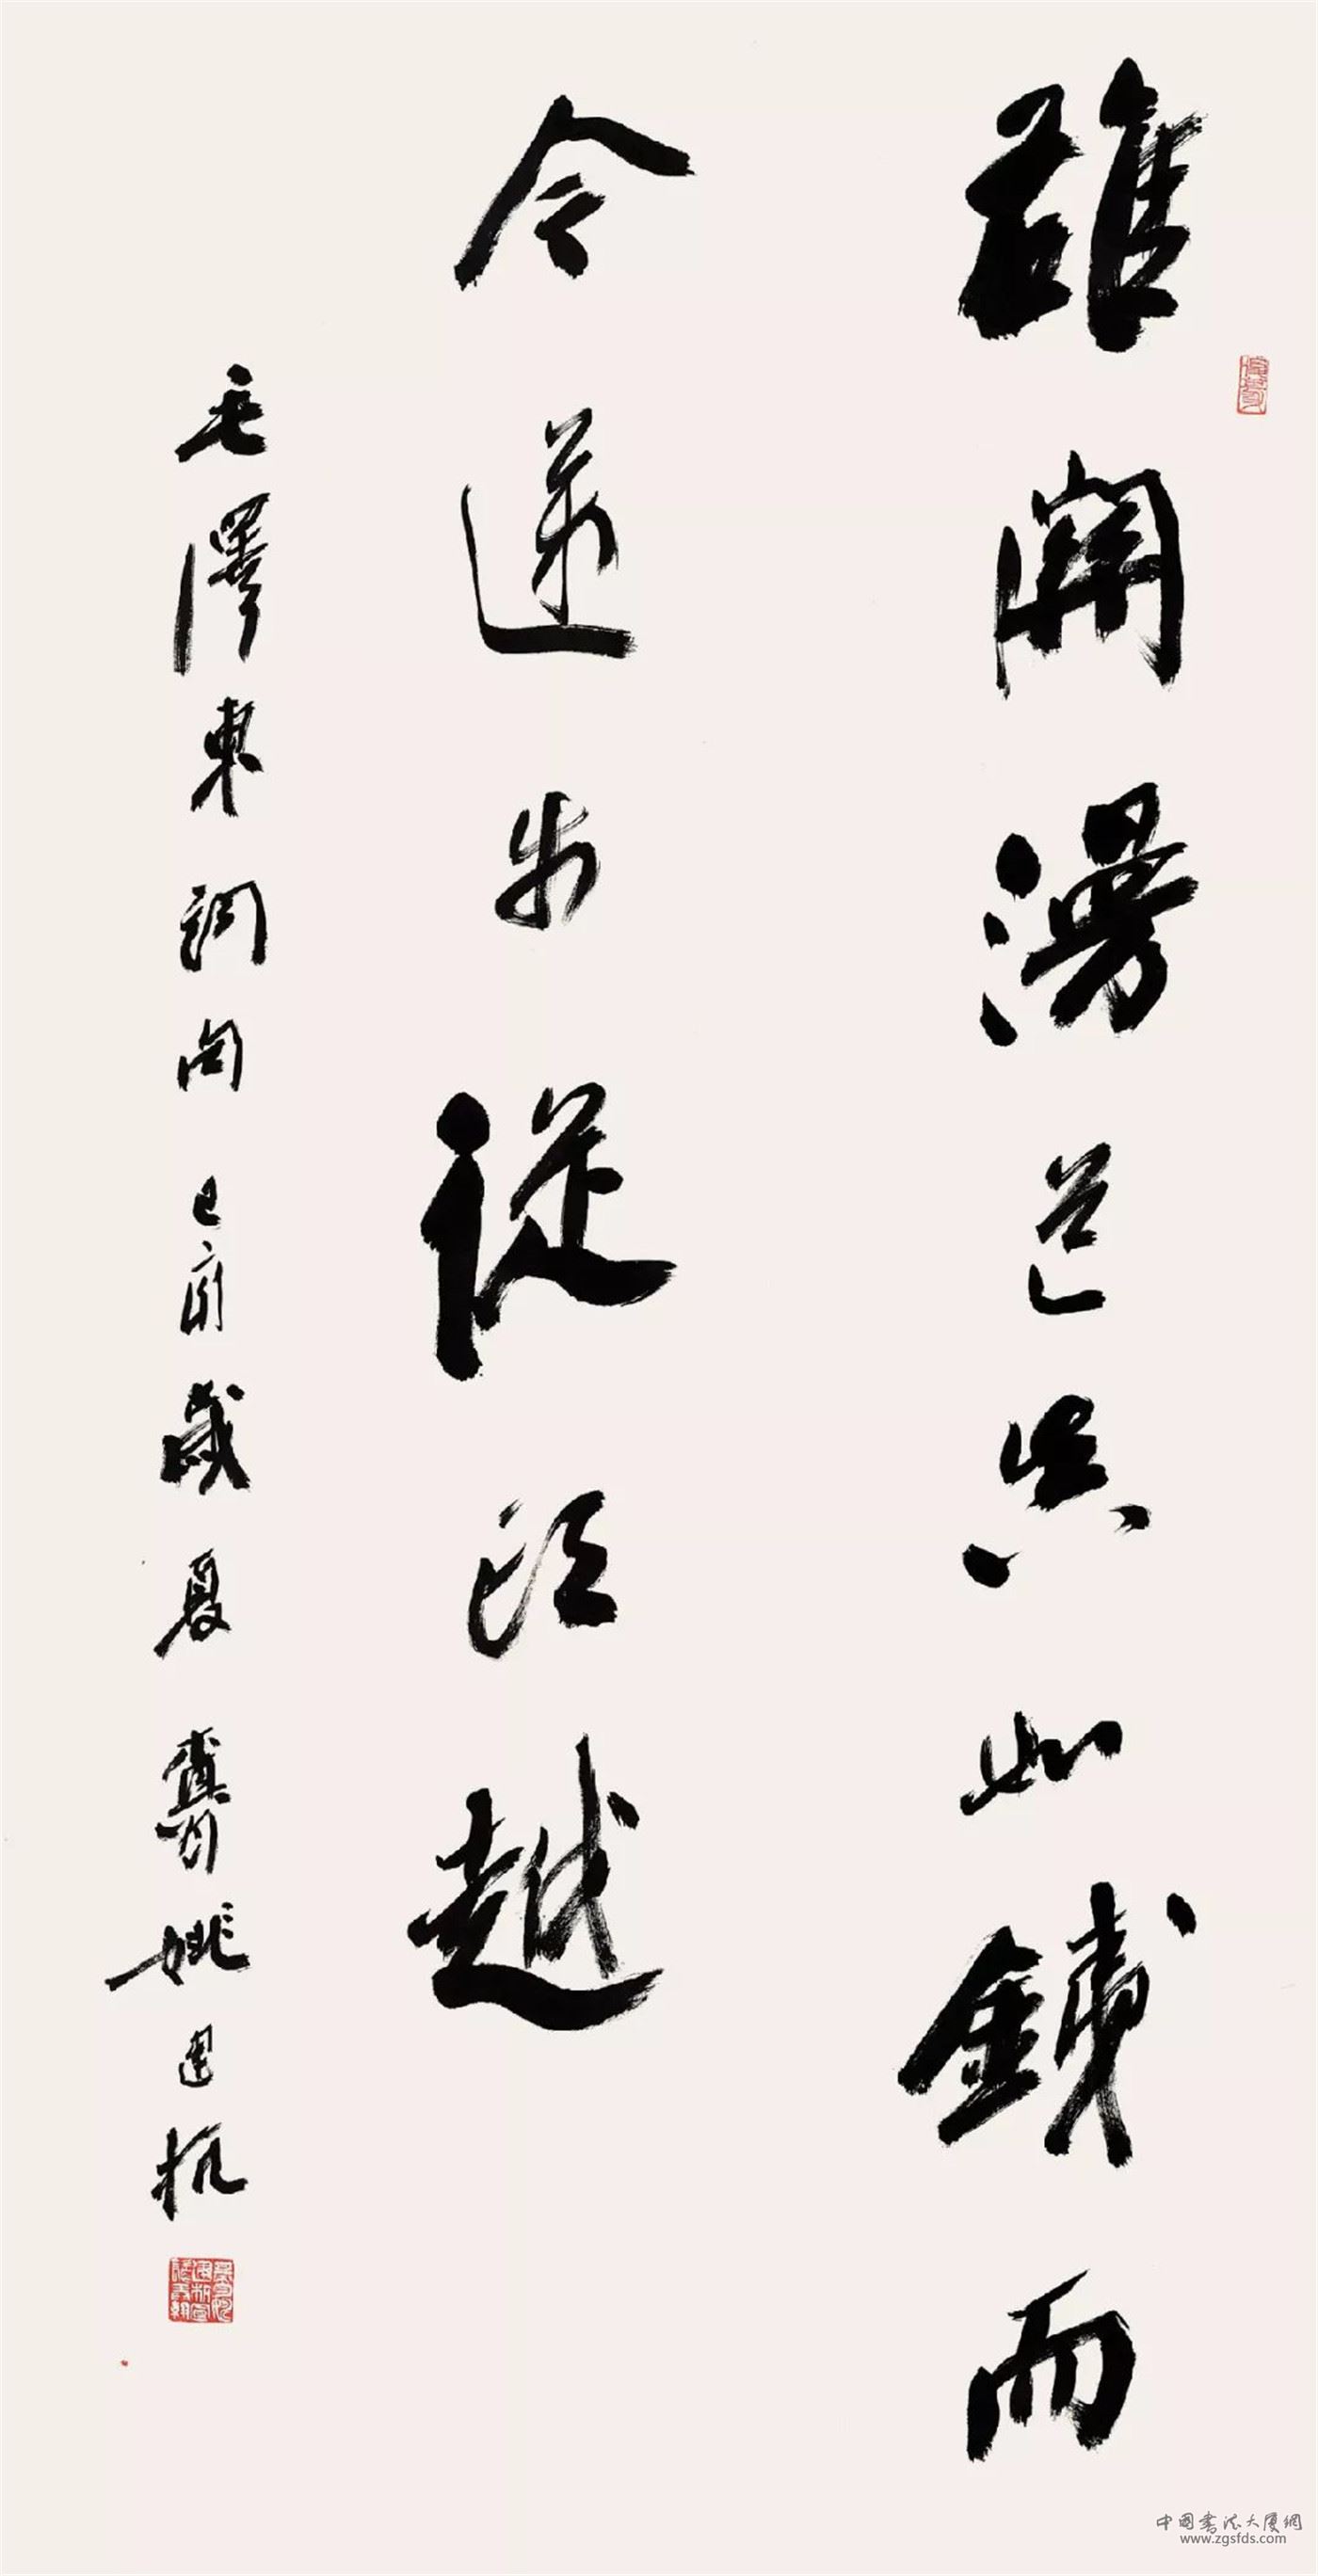 雄關漫道真如鐵而
今邁步從頭越
毛澤東詞句己亥歲夏姚建杭
中國書法大廈網
www.zgsfds.com